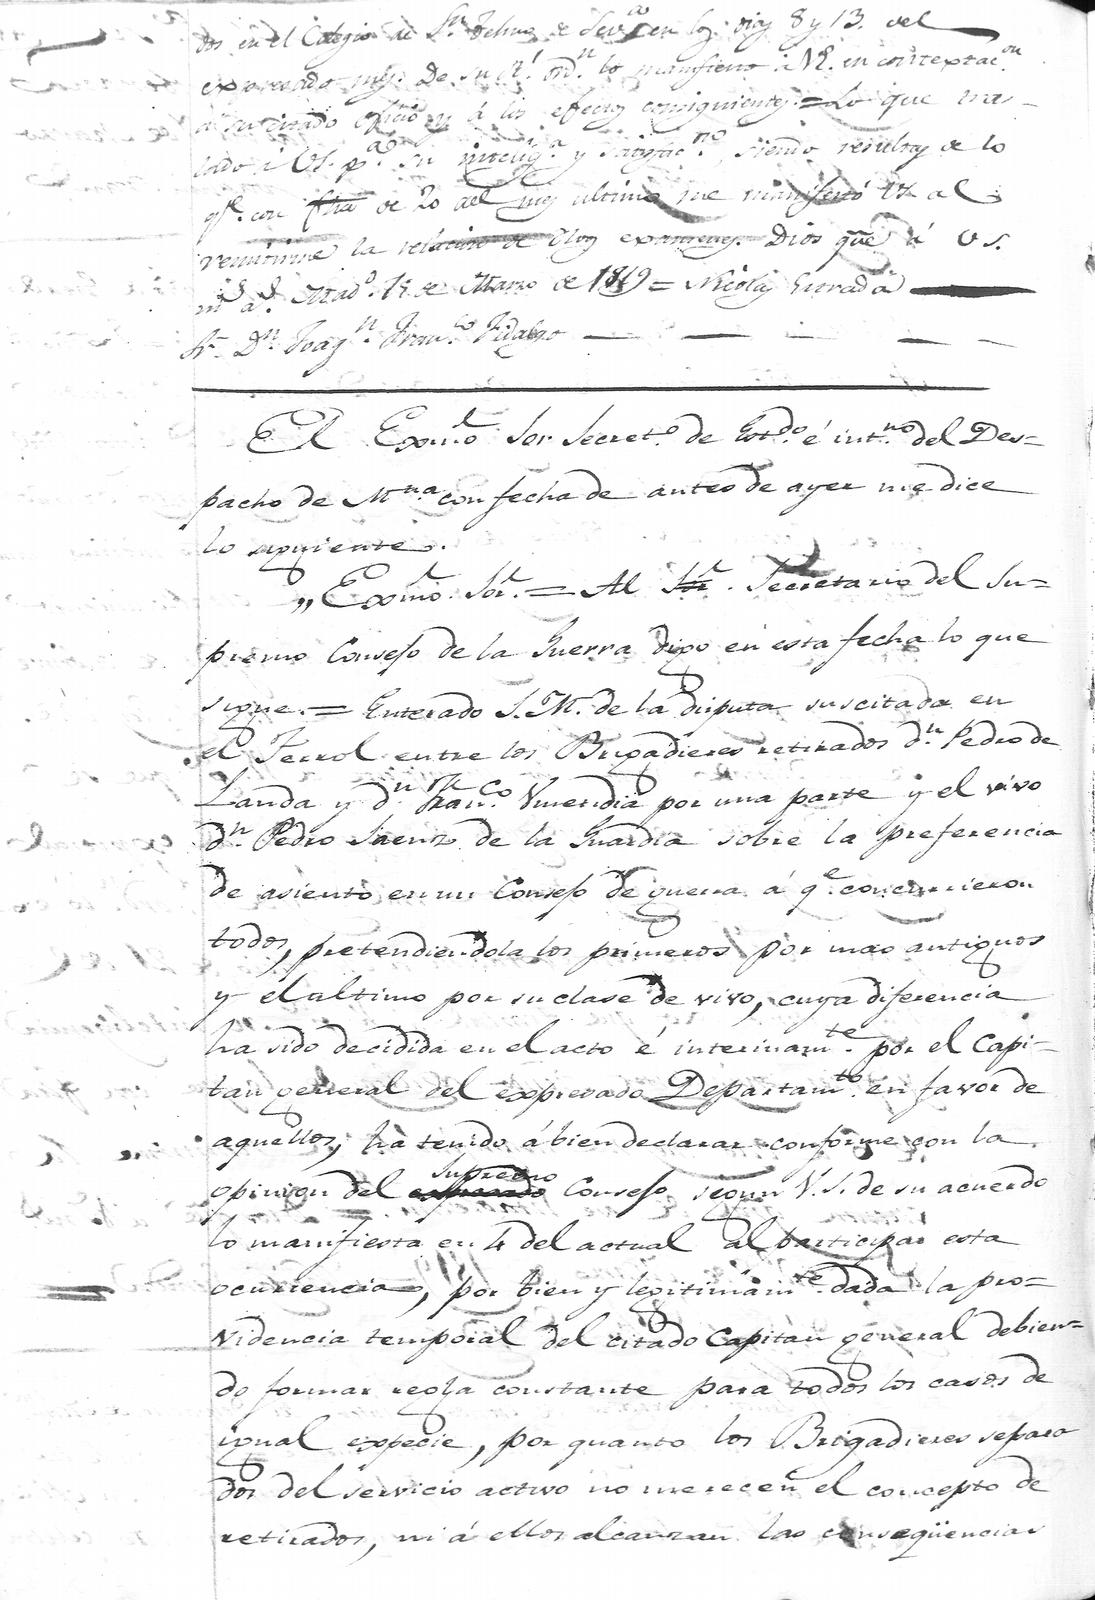 dos en el Colegio de Sn. Telmo de Seva. en los dias 8 y 13. del
expresado mes. De su Rl. ordn. lo manifiesto á VE. en contextacon.
á su citado oficio y á los efectos consiguientes.= Lo que tras-
lado á VS. pa. su inteliga. y satisfacno., siendo resultas de lo
qe. con fha de 20 del mes ultimo me manifestó VS. al
remitirme la relacion de dhos examenes. Dios gue. á VS.
ms. as. Mad. 15 de Marzo de 1819 = Nicolas Estrada
Sr. Dn. Joaqn. Franco. Fidalgo
El Exmo. Sor. Secreto. de Estdo. é intno. del Des-
pacho de Mna. con fecha de antes de ayer me dice
lo siguiente.
„Exmo. Sor. = Al Sor. Secretario del Su-
premo Consejo de la Guerra digo en esta fecha lo que
sigue.= Enterado S.M. de la disputa suscitada en
el Ferrol entre los Brigadieres retirados dn. Pedro de
Landa y dn. Franco. Vmendia por una parte y el vivo
dn. Pedro Saenz de la Guardia sobre la preferencia
de asiento en un Consejo de guerra á qe. concurrieron
todos, pretendiendola los primeros por mas antiguos
y el ultimo por su clase de vivo, cuya diferencia
ha sido decidida en el acto é interinamte. por el Capi-
tan general del expresado Departamto. en favor de
aquellos, ha tenido á bien declarar conforme con la
opinion del expresado Supremo Consejo segun V.S. de su acuerdo
lo manifiesta en 4 del actual al participar esta
ocurrencia, por bien y legitimamte. dada la pro-
videncia temporal del citado Capitan general debien-
do formar regla constante para todos los casos de
igual especie, por quanto los Brigadieres separa
dos del servicio activo no merecen el concepto de
retirados, ni á ellos alcanzan las conseqüencias